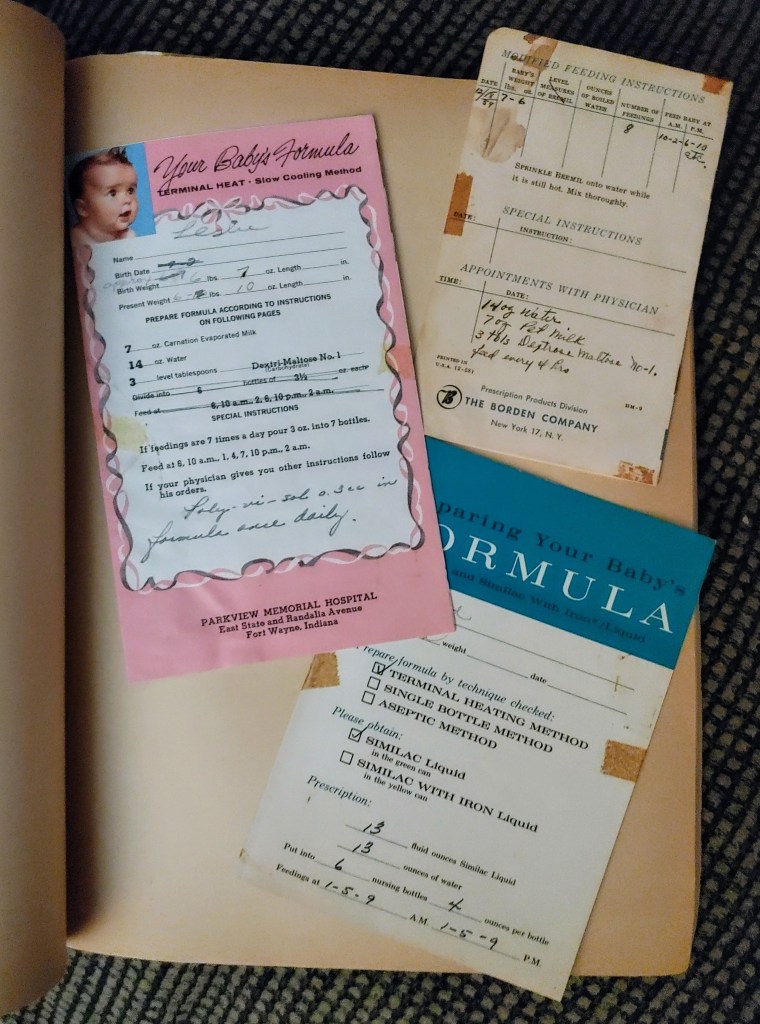 Your Baby's Formula
TERMINAL HEAT · Slow Cooling Method
Leslie
Name
Birth Date
Birth Weight 6 lbs. 7 oz. Length in.
Present Weight 6 lbs. 10 oz. Length in.
PREPARE FORMULA ACCORDING TO INSTRUCTIONS
ON FOLLOWING PAGES
7 oz. Carnation Evaporated Milk
14 oz. Water
3 level tablespoons Dextri-Maltose No. 1
(Carbohydrate)
Divide into 6 bottles of 3½ oz. each
Feed at 6, 10 a.m., 2, 6, 10 p.m., 2 a.m.
SPECIAL INSTRUCTIONS
If feedings are 7 times a day pour 3 oz. into 7 bottles.
Feed at 6, 10 a.m., 1, 4, 7, 10 p.m., 2 a.m.
If your physician gives you other instructions follow
his orders.
Poly-vi-sol 0.3cc in
formula once daily.
PARKVIEW MEMORIAL HOSPITAL
East State and Randalia Avenue
Fort Wayne, Indiana
MODIFIED FEEDING INSTRUCTIONS
DATE
BABY'S
WEIGHT
lbs. oz.
LEVEL
MEASURES
OF BREMIL
OUNCES
OF BOILED
WATER
NUMBER OF
FEEDINGS
FEED BABY AT
A.M. P.M.
7-6 8 10-2-6-10
etc.
SPRINKLE BREMIL onto water while
it is still hot. Mix thoroughly.
SPECIAL INSTRUCTIONS
DATE: INSTRUCTION:
APPOINTMENTS WITH PHYSICIAN
TIME: DATE:
14 oz Water
7 oz Pet Milk
3 tbls Dextrose Maltose No-1.
feed every 4 hrs
PRINTED IN
U.S.A. (2-58)
HM-5
Prescription Products Division
THE BORDEN COMPANY
New York 17, N. Y.
paring Your Baby's
ORMULA
and Similac With Iron/Liquid
weight date
Prepare formula by technique checked:
TERMINAL HEATING METHOD
SINGLE BOTTLE METHOD
ASEPTIC METHOD
Please obtain:
SIMILAC Liquid
in the green can
SIMILAC WITH IRON Liquid
in the yellow can
Prescription:
13 fluid ounces Similac Liquid
13 ounces of water
Put into 6 nursing bottles 4 ounces per bottle
Feedings at 1-5-9 A.M. 1-5-9 P.M.